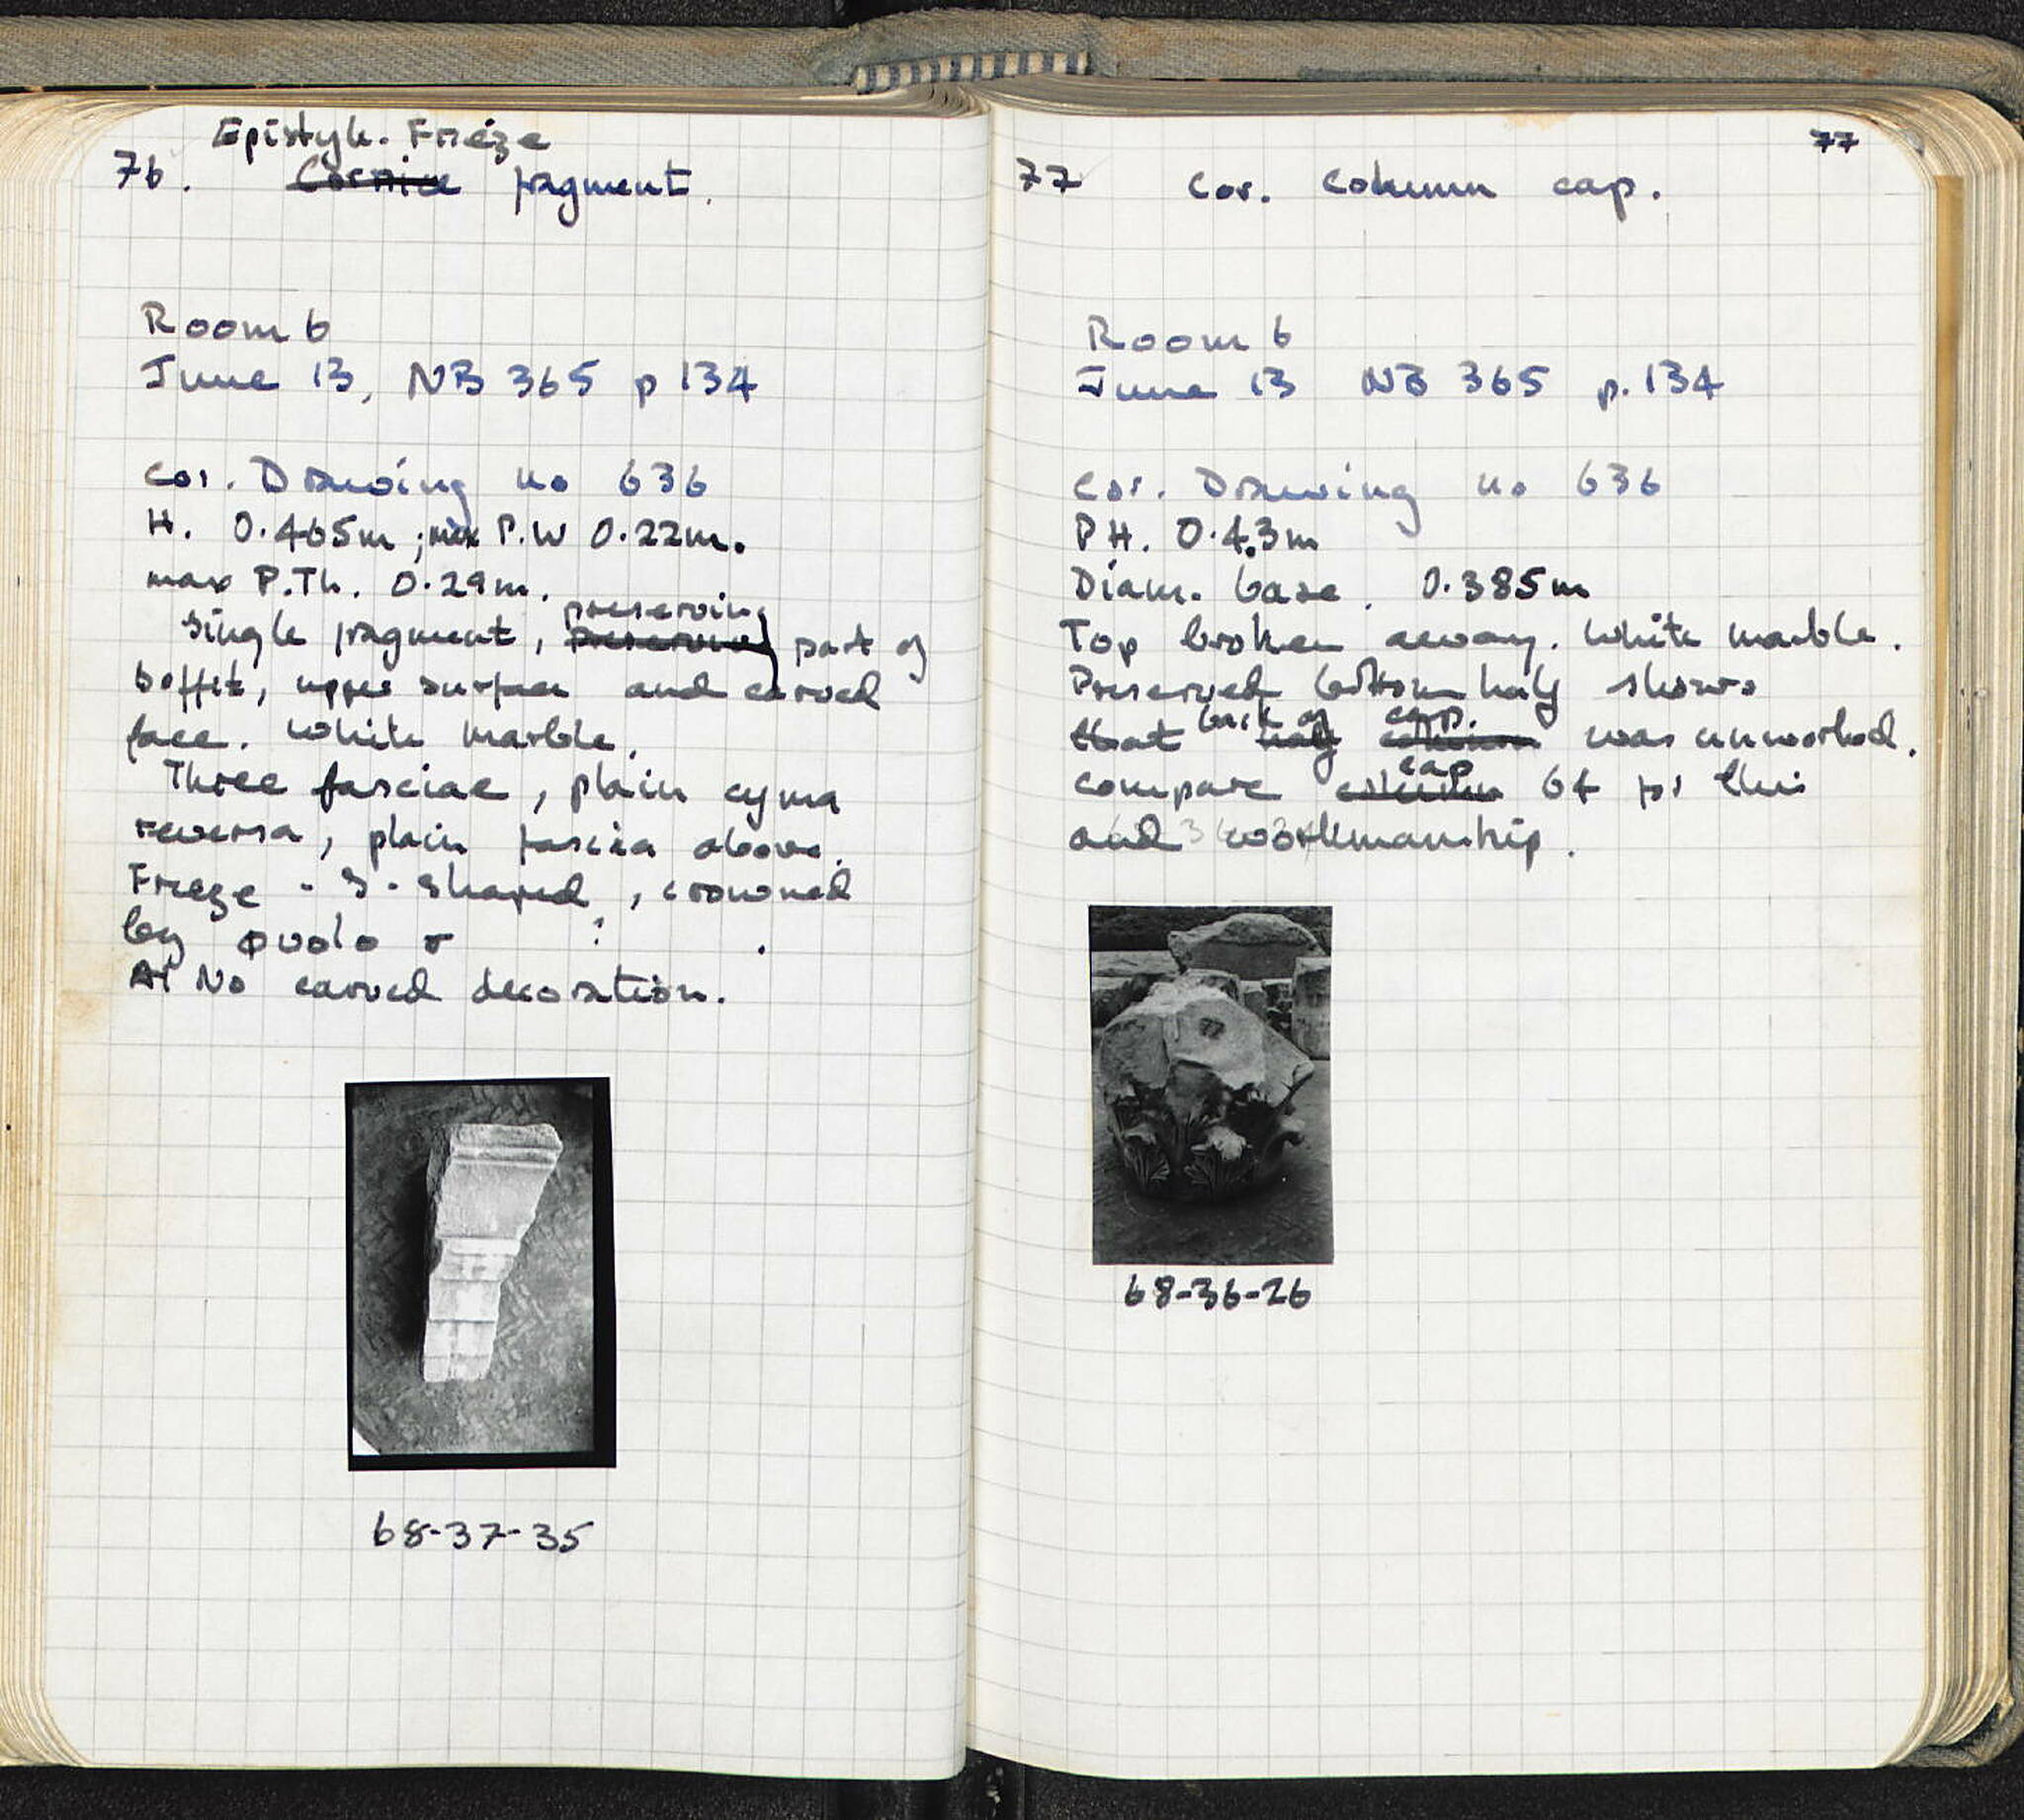 Epistyle. Frieze
76. Cornice fragment.
Room 6
June 13, NB 365 p 134
Cor. Drawing no 636
H. 0.465m ; max P.W 0.22m.
max P.Th. 0.29m.
preserving
Single fragment, part of
soffit, upper surface and carved
face. White marble.
Three fasciae, plain cyma
reversa, plain fascia above.
Frieze - S-shaped, crowned
by ovolo
No carved decoration.
68-37-35
77
77 Cor. Column cap.
Room 6
June 13 NB 365 p. 134
Cor. Drawing no 636
PH. 0.43m
Diam. base. 0.385m
Top broken away. White marble.
Preserved bottom half shows
back of cap.
that half column was unworked.
cap
compare column 64 for this
and workmanship.
68-36-26